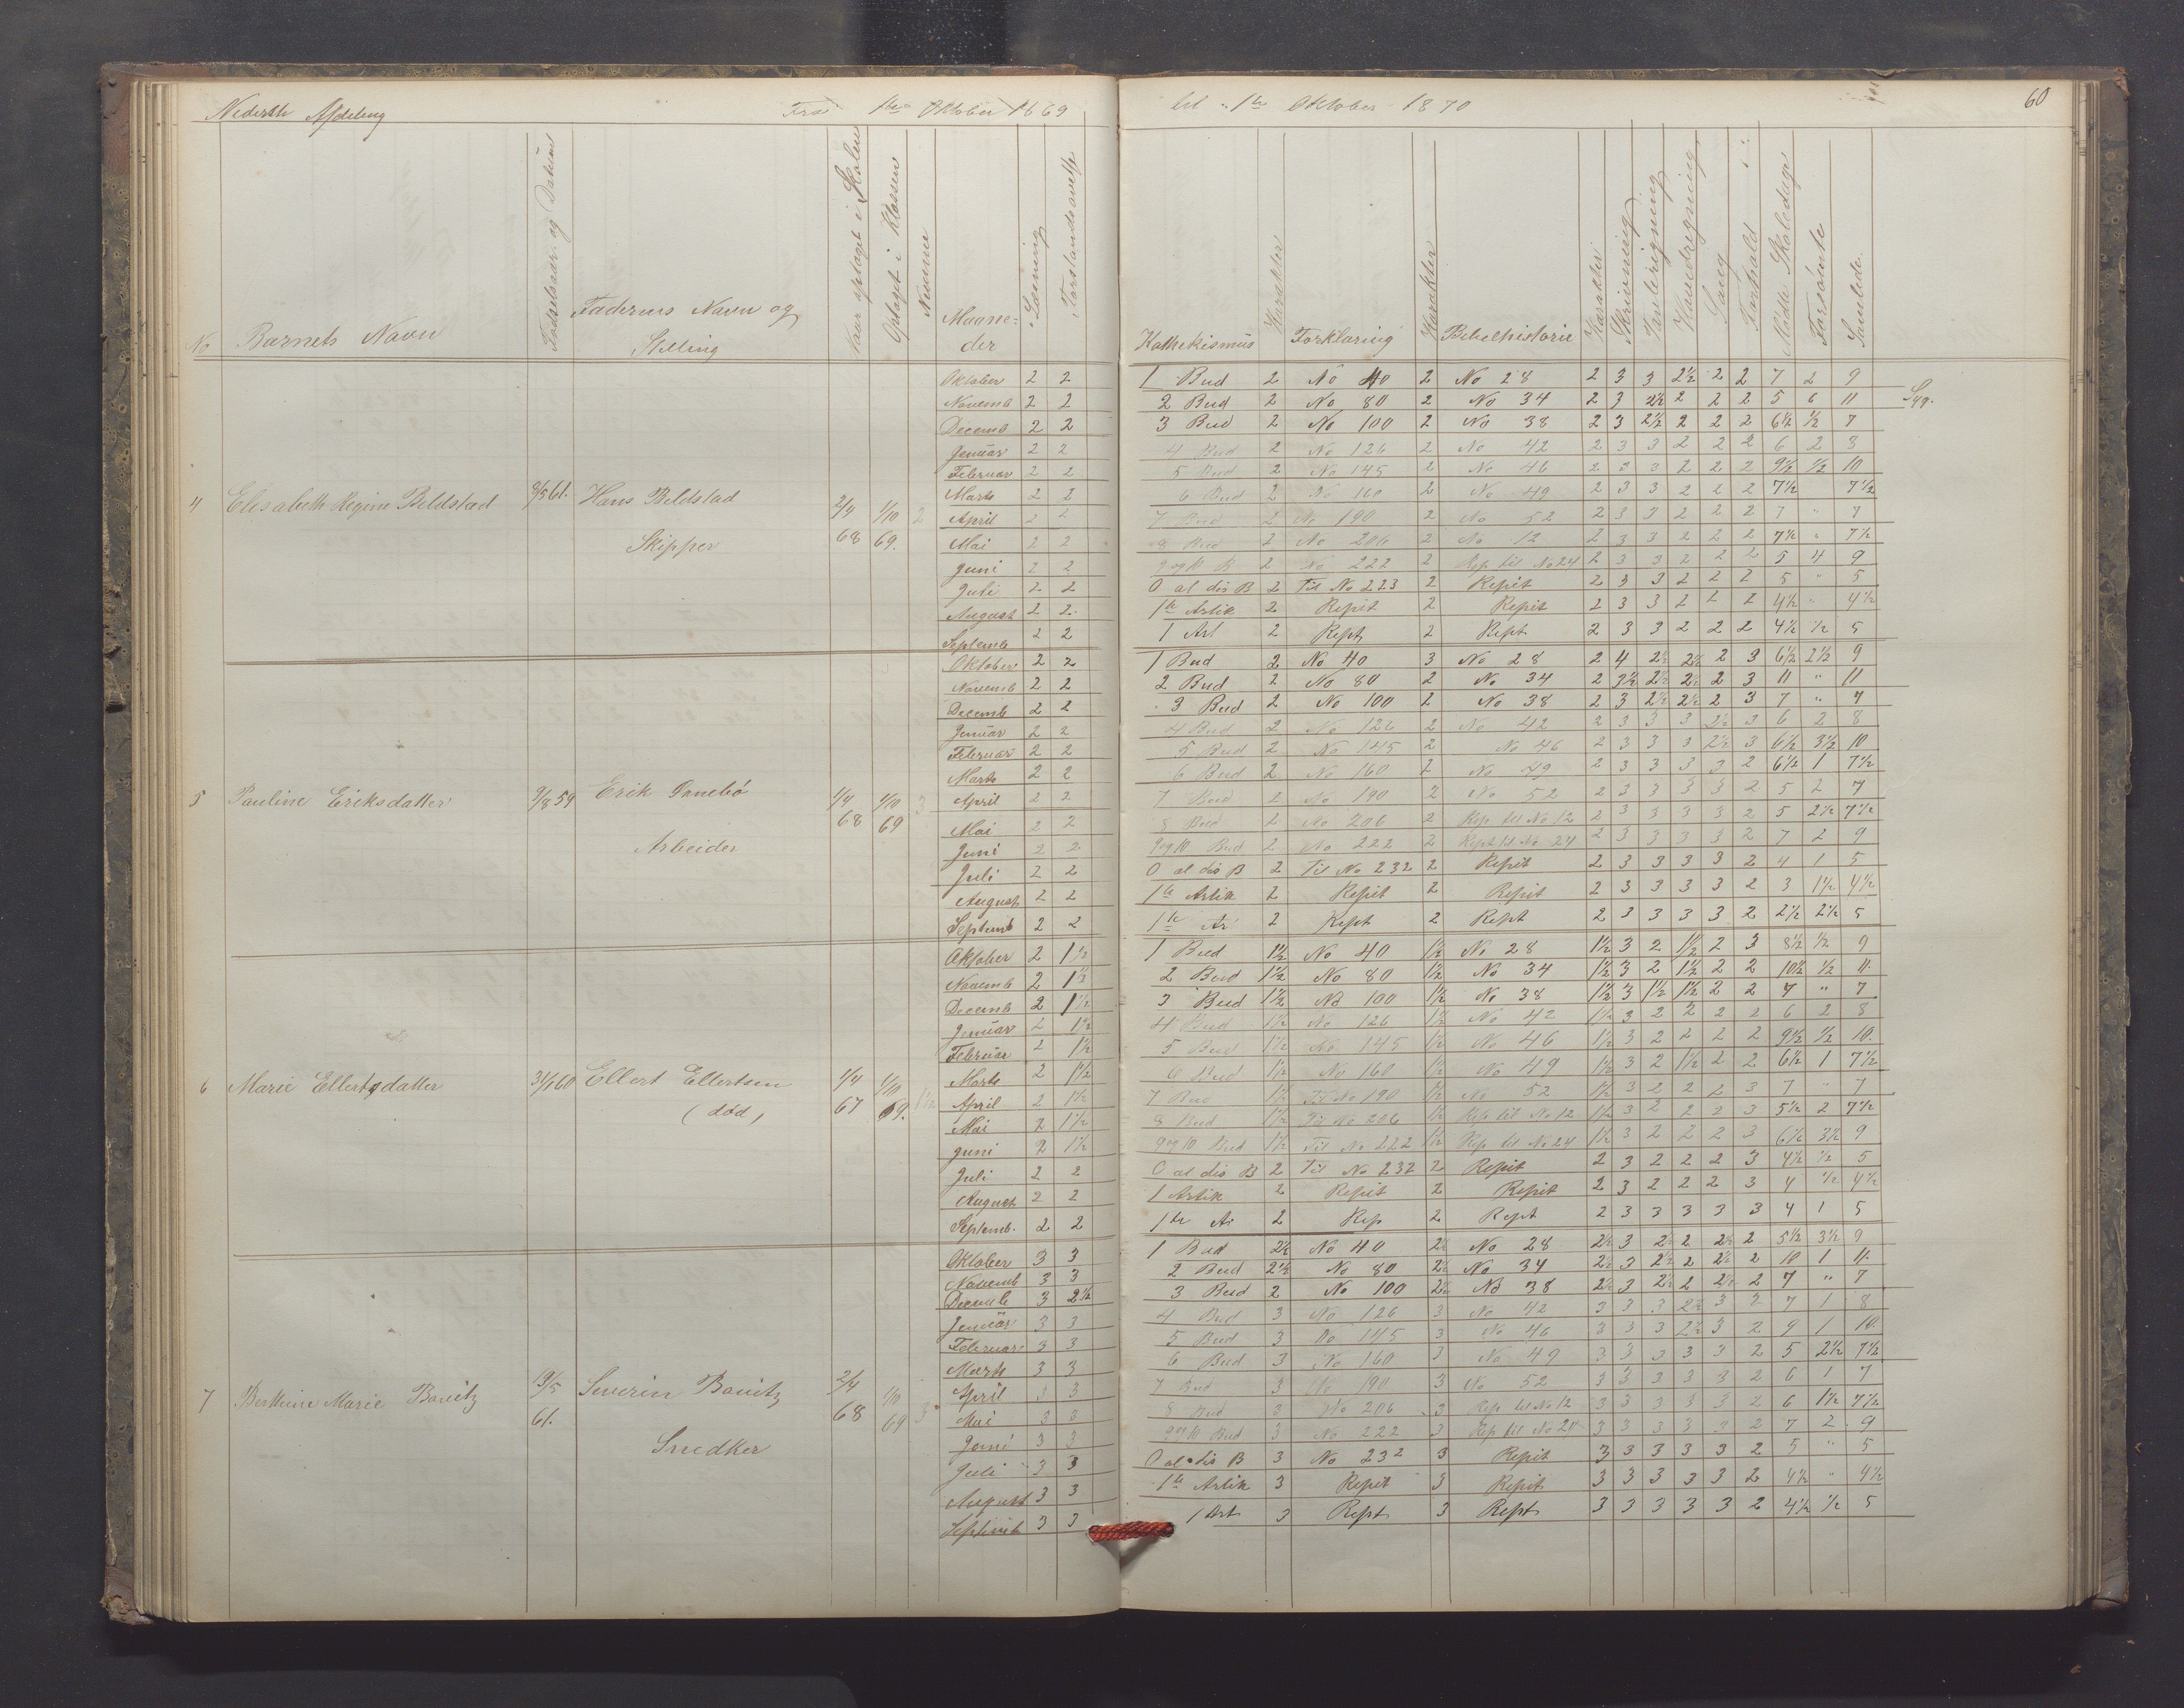 Nederste Afdeling Fra 1ste Oktober 1869 til 1te Oktober 1870 60
No Barnets Navn Fødselsaar og Datum Faderens Navn og Stilling Naar optaget i Skolen Optaget i Klassen Numer Maaneder Læsning Forstandsøvelse Kathekismus Karakter Forklaring Karakter Bibelhistorie Karakter Skrivning Tavleregning Hovedregning Sang Forhold Mødte Skoledage Forsømte Samlede
4 Elisabeth Regine Beldstad 8/5 61. Hans Beldstad Skipper 2/4 68 1/10 69. 2
Oktober 2 2 1 Bud 2 No 40 2 No 28 2 3 3 2½ 2 2 7 2 9
Novemb 2 2 2 Bud 2 No 80 2 No 34 2 3 2½ 2 2 2 5 6 11 Syg.
Decemb 2 2 3 Bud 2 No 100 2 No 38 2 3 2½ 2 2 2 6½ ½ 7
Januar 2 2 4 Bud 2 No 126 2 No 42 2 3 3 2 2 2 6 2 8
Februar 2 2 5 Bud 2 No 145 2 No 46 2 3 3 2 2 2 9½ ½ 10
Marts 2 2 6 Bud 2 No 160 2 No 49 2 3 3 2 2 2 7½ 7½
April 2 2 7 Bud 2 No 190 2 No 52 2 3 3 2 2 2 7 " 7
Mai 2 2 8 Bud 2 No 206 2 No 12 2 3 3 2 2 2 7½ " 7½
Juni 2 2 9 og 10 B 2 No 222 2 Rep til No 24 2 3 3 2 2 2 5 4 9
Juli 2 2 O al dis B 2 Til No 223 2 Repit 2 3 3 2 2 2 5 " 5
August 2 2 1te Artik 2 Repit 2 Repit 2 3 3 2 2 2 4½ " 4½
Septemb 2 2 1 Art 2 Rept 2 Rept 2 3 3 2 2 2 4½ ½ 5
5 Pauline Eriksdatter 9/8 59 Erik Arbeider 1/4 68 1/10 69 3
Oktober 2 2 1 Bud 2 No 40 3 No 28 2 4 2½ 2½ 2 3 6½ 2½ 9
Novemb 2 2 2 Bud 2 No 80 2 No 34 2 3½ 2½ 2½ 2 3 11 " 11
Decemb 2 2 3 Bud 2 No 100 2 No 38 2 3 2½ 2½ 2 3 7 " 7
Januar 2 2 4 Bud 2 No 126 2 No 42 2 3 3 3 2½ 3 6 2 8
Februar 2 2 5 Bud 2 No 145 2 No 46 2 3 3 3 2½ 3 6½ 3½ 10
Marts 2 2 6 Bud 2 No 160 2 No 49 2 3 3 3 3 2 6½ 1 7½
April 2 2 7 Bud 2 No 190 2 No 52 2 3 3 3 3 2 5 2 7
Mai 2 2 8 Bud 2 No 206 2 Rep til No 12 2 3 3 3 3 2 5 2½ 7½
Juni 2 2 9 og 10 Bud 2 No 222 2 Rept til No 24 2 3 3 3 3 2 7 2 9
Juli 2 2 O al dis B 2 Til No 232 2 Repit 2 3 3 3 3 2 4 1 5
August 2 2 1te Artik 2 Repit 2 Repit 2 3 3 3 3 2 3 1½ 4½
Septemb 2 2 1te Ar 2 Rept 2 Rept 2 3 3 3 3 2 2½ 2½ 5
6 Marie Ellertsdatter 31/1 60 Ellert Ellertsen (død) 1/4 67 1/10 69. 1½
Oktober 2 1½ 1 Bud 1½ No 40 1½ No 28 1½ 3 2 1½ 2 3 8½ ½ 9
Novemb 2 1½ 2 Bud 1½ No 80 1½ No 34 1½ 3 2 1½ 2 2 10½ ½ 11.
Decemb 2 1½ 3 Bud 1½ No 100 1½ No 38 1½ 3 1½ 1½ 2 2 7 " 7
Januar 2 1½ 4 Bud 1½ No 126 1½ No 42 1½ 3 2 2 2 2 6 2 8
Februar 2 1½ 5 Bud 1½ No 145 1½ No 46 1½ 3 2 2 2 2 9½ ½ 10.
Marts 2 1½ 6 Bud 1½ No 160 1½ No 49 1½ 3 2 1½ 2 2 6½ 1 7½
April 2 1½ 7 Bud 1½ Til No 190 1½ No 52 1½ 3 2 2 2 3 7 " 7
Mai 2 1½ 8 Bud 1½ Til No 206 1½ Rep til No 12 1½ 3 2 2 2 3 5½ 2 7½
Juni 2 1½ 9 og 10 Bud 1½ Til No 222 1½ Rep til No 24 1½ 3 2 2 2 3 6½ 3½ 9
Juli 2 2 O al dis B 2 Til No 232 2 Repit 2 3 2 2 2 3 4½ ½ 5
August 2 2 1 Artik 2 Repit 2 Repit 2 3 2 2 2 3 4 ½ 4½
Septemb. 2 2 1te Ar 2 Rep 2 Rept 2 3 3 3 3 3 4 1 5
7 Berthine Marie Bauitz 19/5 61. Severin Bauitz Snedker 2/4 68 1/10 69 3
Oktober 3 3 1 Bud 2½ No 40 2½ No 28 2½ 3 2½ 2 2½ 2 5½ 3½ 9
Novemb 3 3 2 Bud 2½ No 80 2½ No 34 2½ 3 2½ 2 2½ 2 10 1 11.
Decemb 3 2½ 3 Bud 2 No 100 2½ No 38 2½ 3 2½ 2 2½ 2 7 " 7
Januar 3 3 4 Bud 3 No 126 3 No 42 3 3 3 2½ 3 2 7 1 8
Februar 3 3 5 Bud 3 No 145 3 No 46 3 3 3 2½ 3 2 9 1 10.
Marts 3 3 6 Bud 3 No 160 3 No 49 3 3 3 3 3 2 5 2½ 7½
April 3 3 7 Bud 3 No 190 3 No 52 3 3 3 3 3 2 6 1 7
Mai 3 3 8 Bud 3 No 206 3 Rep til No 12 3 3 3 3 3 2 6 1½ 7½
Juni 3 3 9 og 10 Bud 3 No 222 3 Rep til No 24 3 3 3 3 3 2 7 2 9
Juli 3 3 O al dis B 3 No 232 3 Repit 3 3 3 3 3 2 5 " 5
August 3 3 1te Artik 3 Repit 3 Repit 3 3 3 3 3 2 4½ " 4½
Septemb 3 3 1 Art 3 Rept 3 Rept 3 3 3 3 3 2 4½ ½ 5